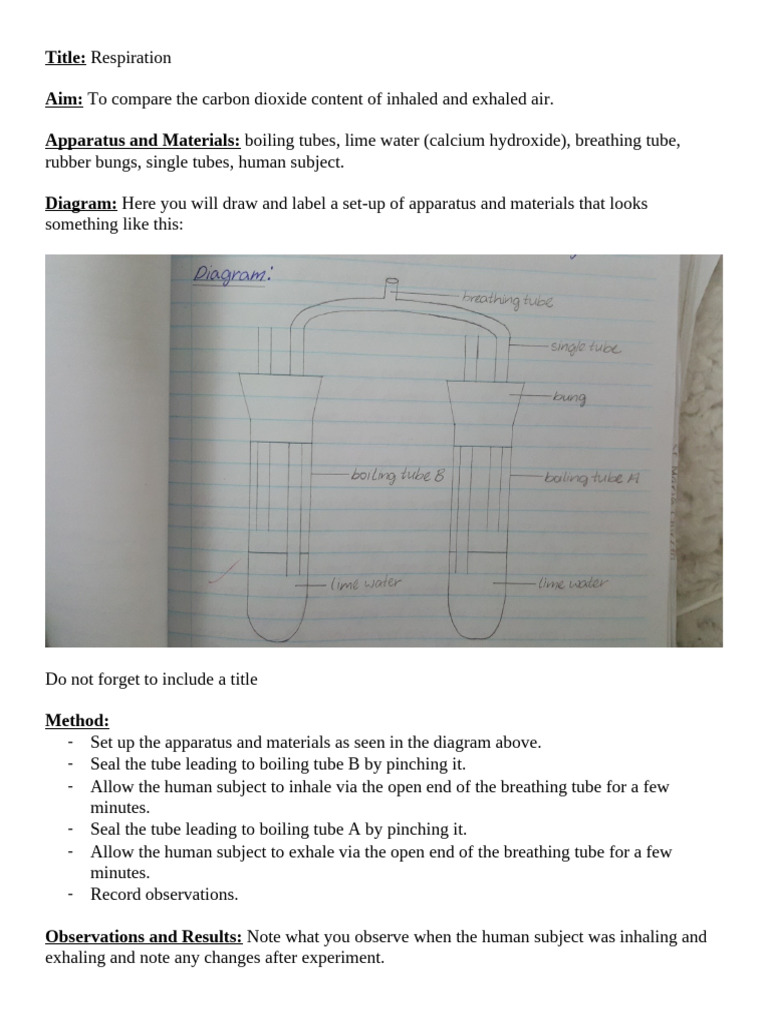 Title: Respiration
Aim: To compare the carbon dioxide content of inhaled and exhaled air.
Apparatus and Materials: boiling tubes, lime water (calcium hydroxide), breathing tube,
rubber bungs, single tubes, human subject.
Diagram: Here you will draw and label a set-up of apparatus and materials that looks
something like this:
Diagram:
breathing tube
single tube
bung
boiling tube B
boiling tube A
lime water
lime water
Do not forget to include a title
Method:
- Set up the apparatus and materials as seen in the diagram above.
- Seal the tube leading to boiling tube B by pinching it.
- Allow the human subject to inhale via the open end of the breathing tube for a few
minutes.
- Seal the tube leading to boiling tube A by pinching it.
- Allow the human subject to exhale via the open end of the breathing tube for a few
minutes.
- Record observations.
Observations and Results: Note what you observe when the human subject was inhaling and
exhaling and note any changes after experiment.